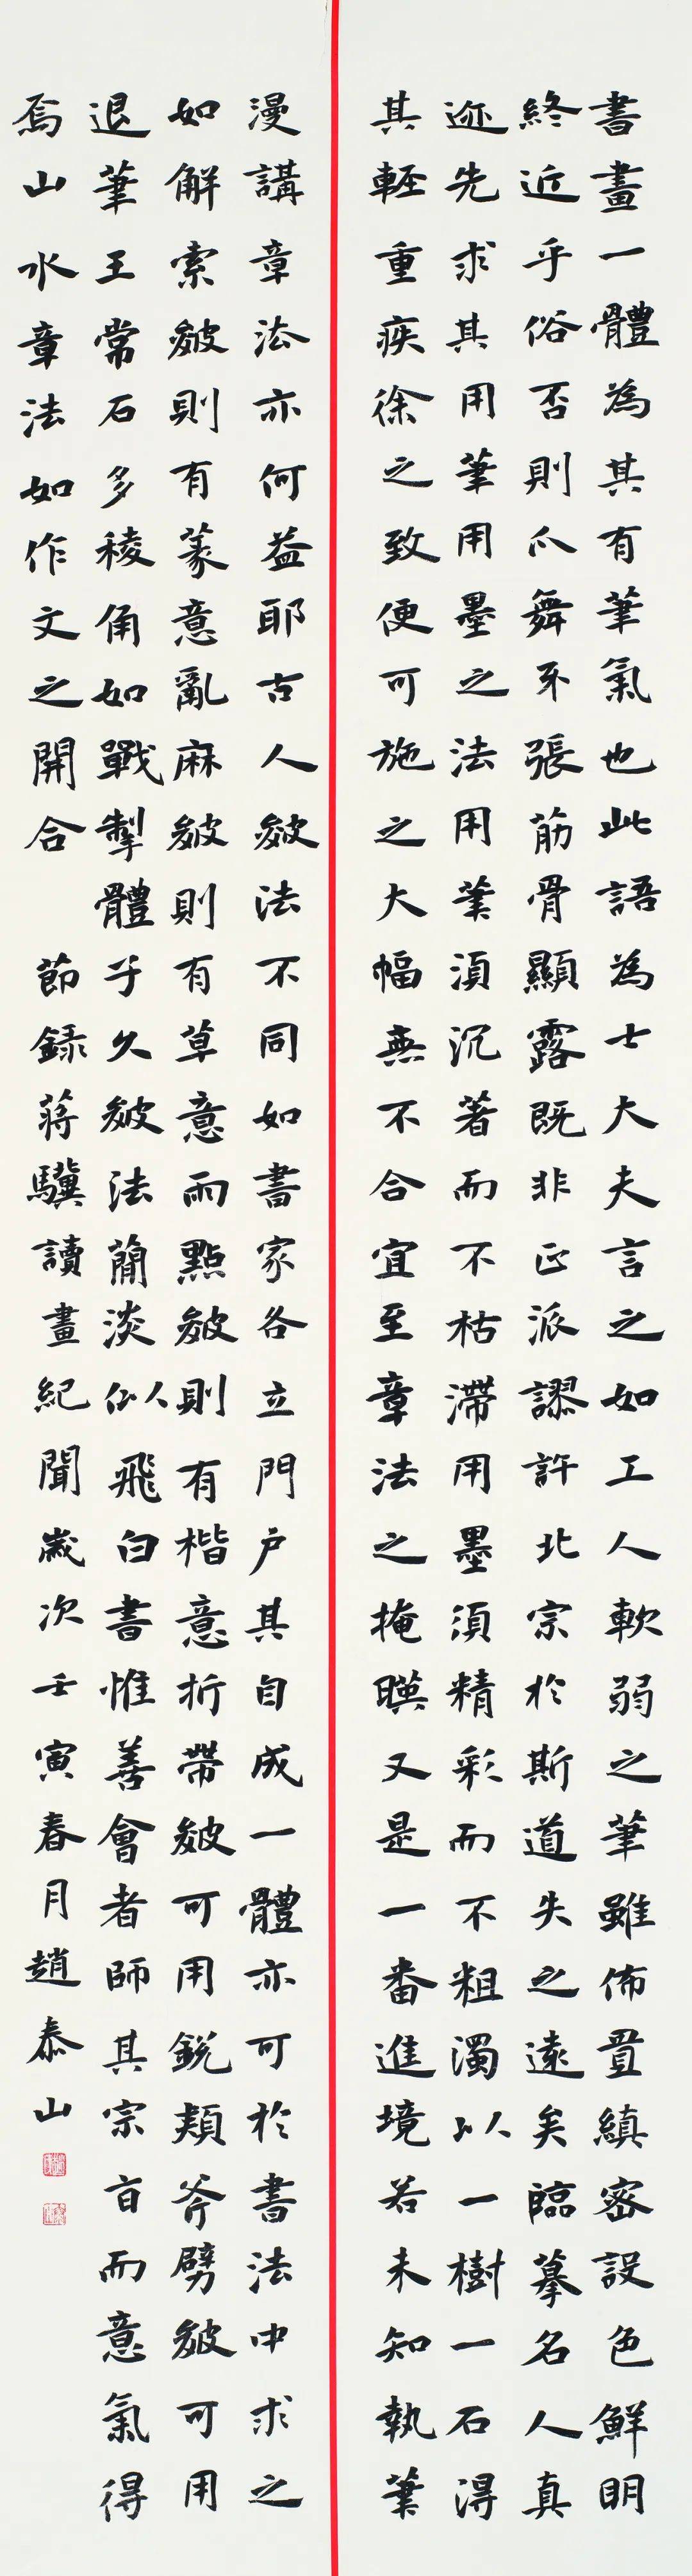 書畫一體為其有筆氣也此語為士大夫言之如工人軟弱之筆雖佈置縝密設色鮮明
終近乎俗否則爪舞牙張筋骨顯露既非正派謬許北宗於斯道失之遠矣臨摹名人真
迹先求其用筆用墨之法用筆須沉著而不枯滯用墨須精彩而不粗濁以一樹一石得
其輕重疾徐之致便可施之大幅無不合宜至章法之掩暎又是一番進境若未知執筆
漫講章法亦何益耶古人皴法不同如書家各立門户其自成一體亦可於書法中求之
如解索皴則有篆意亂麻皴則有草意雨點皴則有楷意折帶皴可用銳穎斧劈皴可用
退筆王常石多稜角如戰掣體子久皴法蕑淡似飛白書惟善會者師其宗旨而意氣得
焉山水章法如作文之開合 節録蔣驥讀畫紀聞歲次壬寅春月趙泰山